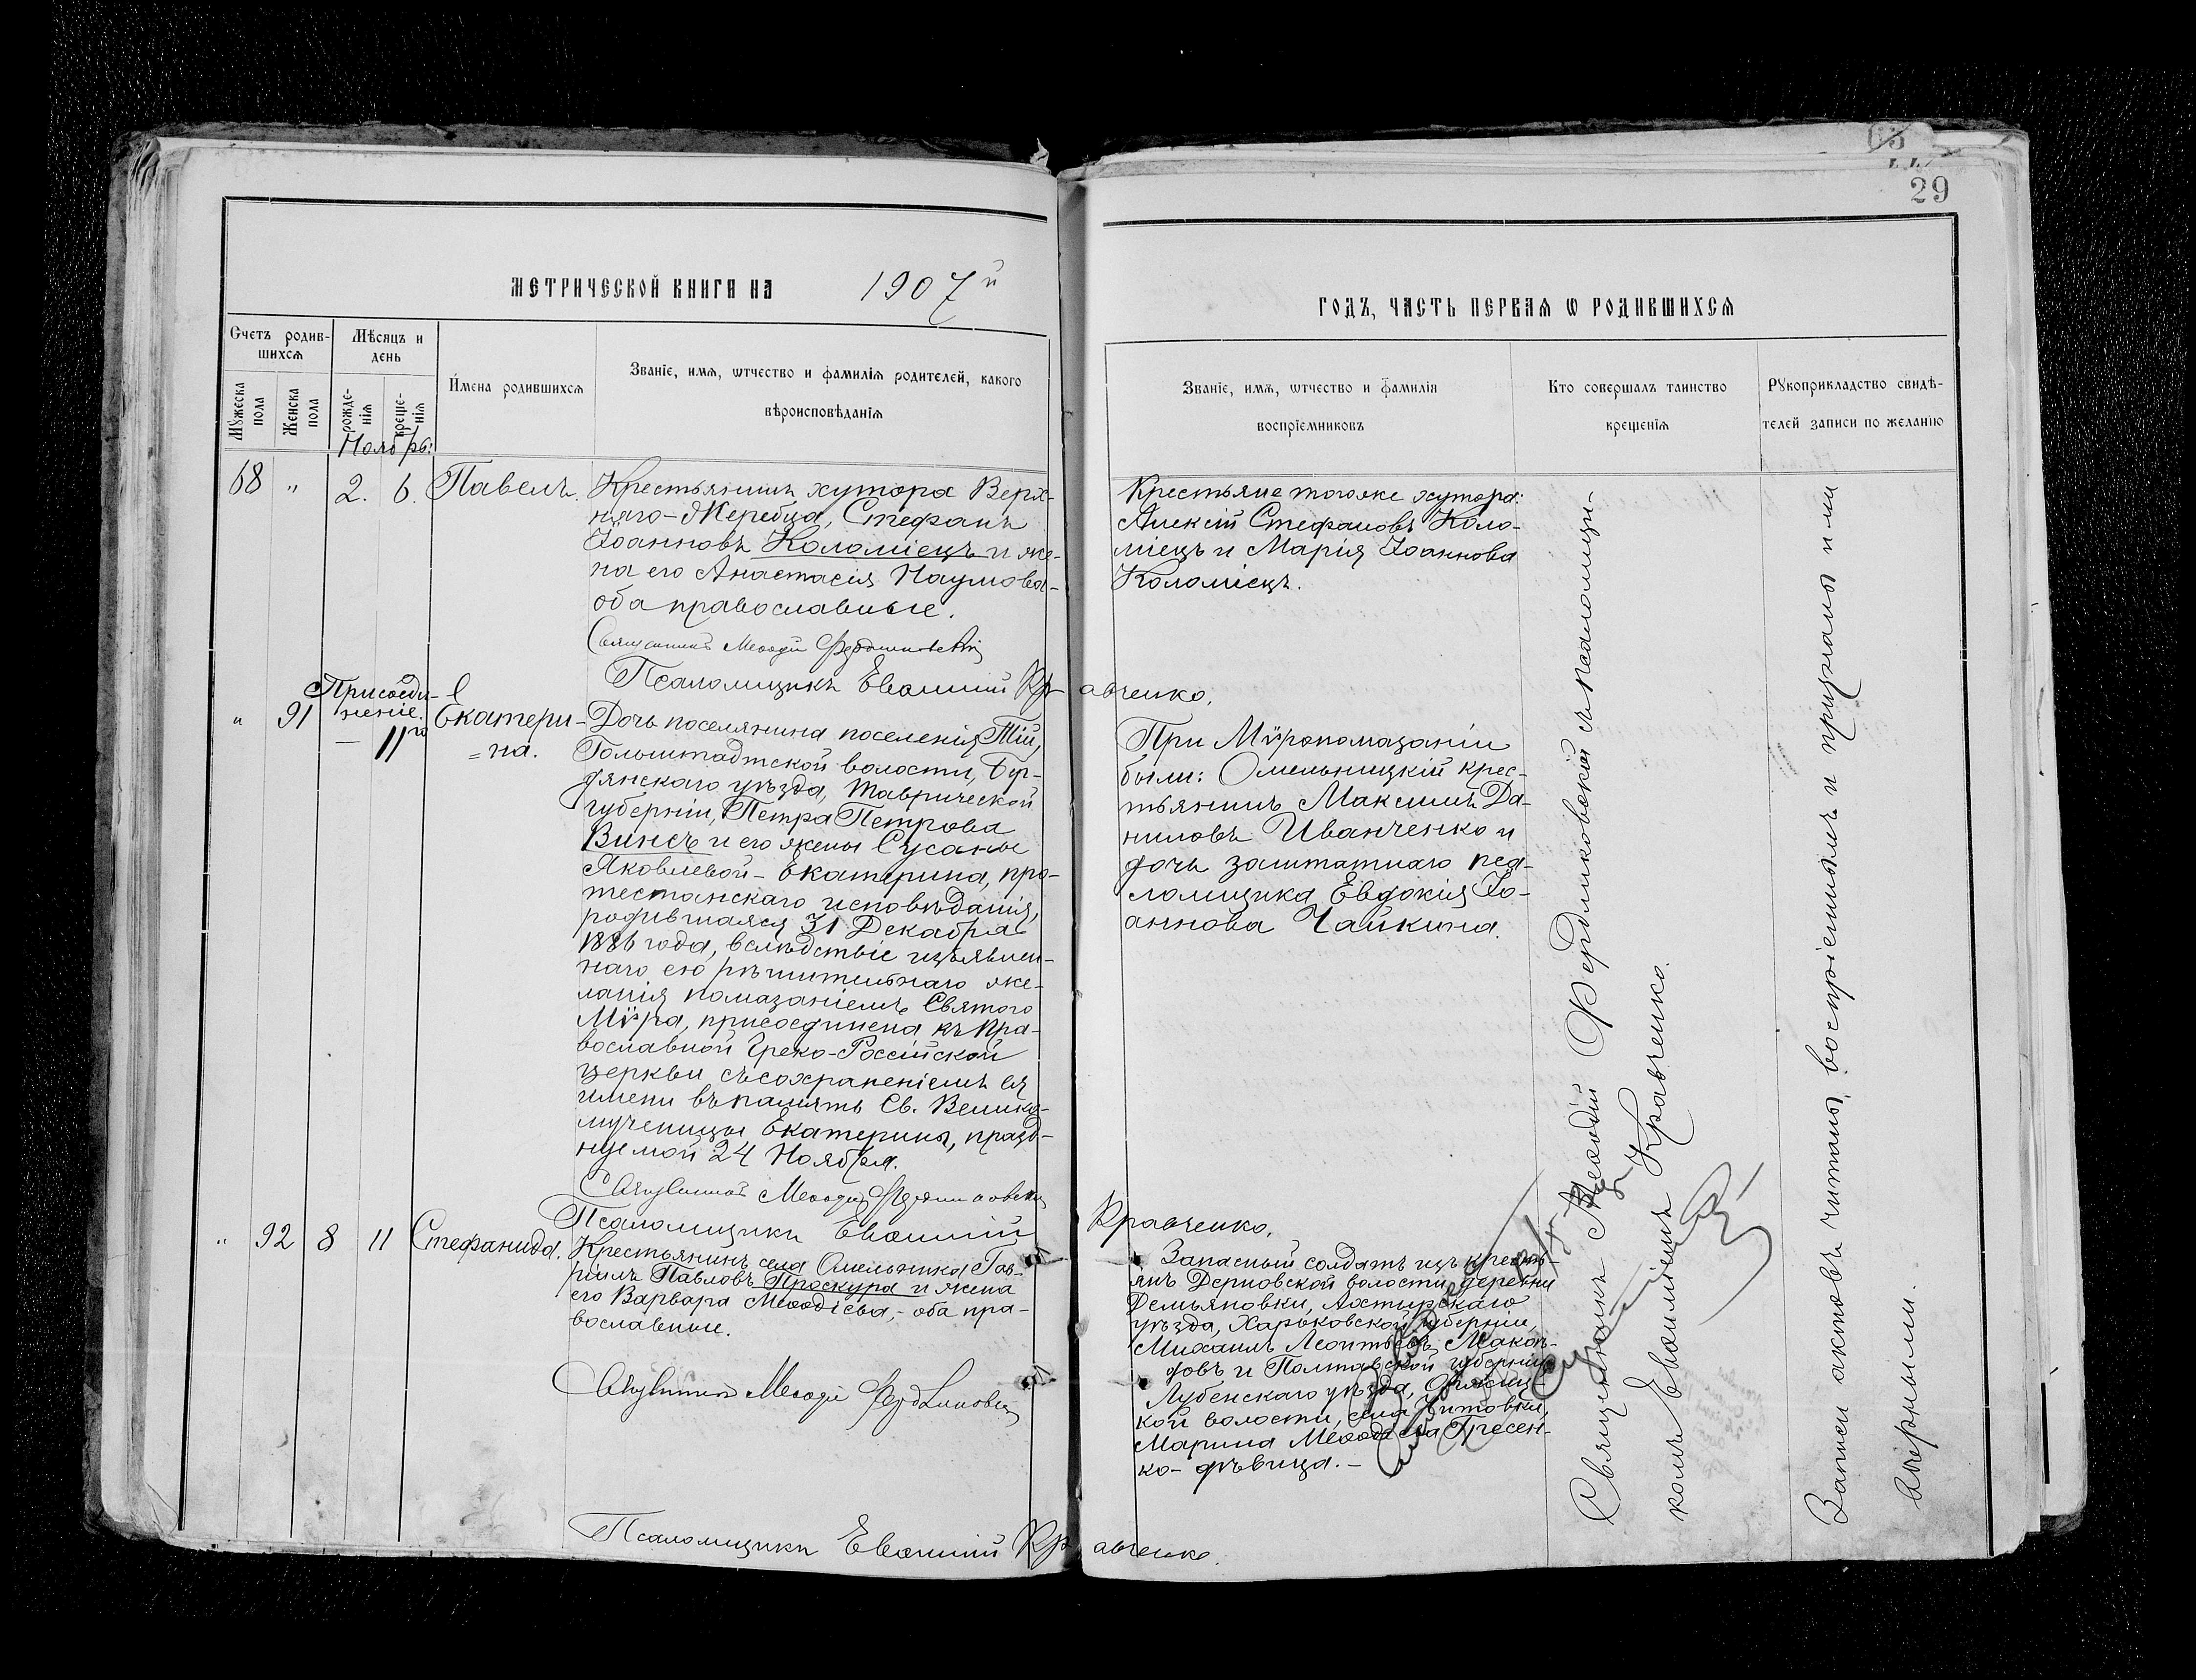 29
МЕТРИЧЕСКОЙ КНИГИ НА 1907й
ГОДЪ, ЧАСТЬ ПЕРВАЯ Ѡ РОДИВШИХСЯ
Счетъ родив-
шихся
Мужеска пола
Женска пола
Мѣсяцъ и
день
рожде-
нія
креще-
нія
Имена родившихся
Званіе, имя, ѡтчество и фамилія родителей, какого
вѣроисповѣданія
Званіе, имя, ѡтчество и фамилія
воспріемниковъ
Кто совершалъ таинство
крещенія
Рукоприкладство свидѣ-
телей записи по желанію
Ноябрь:
68 " 2. 6. Павелъ.
Крестьянинъ хутора Верх-
няго-Жеребца, Стефанъ
Іоанновъ Коломіецъ и же-
на его Анастасія Наумова-
оба православные.
Священникъ Меѳодій Фердинковскій
Псаломщикъ Евѳимій Кравченко.
Крестьяне тогоже хутора:
Алексій Стефановъ Коло-
міецъ и Марія Іоаннова
Коломіецъ.
Присоеди-
неніе.
" 91 — 11го Екатери-
=на.
Дочь поселянина поселенія
Гольштадтской волости, Бер-
дянскаго уѣзда, Таврической
губерніи, Петра Петрова
Винсъ и его жены Сусанны
Яковлевой - Екатерина, про-
тестанскаго исповѣданія,
родившаяся 31 Декабря
1886 года, вслѣдствіе изъявлен-
наго ею рѣшительнаго же-
ланія помазаніемъ Святого
Мѵра, присоединена къ Пра-
вославной Греко-Россійской
церкви съ сохраненіемъ ея
имени въ память Св. Велико-
мученицы Екатерины, празд-
нуемой 24 Ноября.
Священникъ Меѳодій Фердинковскій
Псаломщикъ Евѳимій Кравченко.
При Мѵропомазаніи
были: Омельницкій крес-
тьянинъ Максимъ Да-
ниловъ Иванченко и
дочь заштатнаго пса-
ломщика Евдокія Іо-
аннова Чайкина.
" 92 8 11 Стефанида.
Крестьянинъ села Омельника Гав-
ріилъ Павловъ Проскура и жена
его Варвара Меѳодіева, - оба пра-
вославные.
Священникъ Меѳодій Фердинковскій
Псаломщикъ Евѳимій Кравченко.
Запасный солдатъ изъ кресть-
янъ Дерновской волости деревни
Демьяновки, Ахтырскаго
уѣзда, Харьковской губерніи,
Михаилъ Леонтьевъ
и Полтавской губерніи
Лубенскаго уѣзда,
кой волости, села
Марина Меѳодіева
ко - дѣвица. -
Священникъ Меѳодій Фердинковскій съ псаломщи-
комъ Евѳиміемъ Кравченко.
Записи актовъ читаны, воспріемникъ и признаны ими
вѣрными.